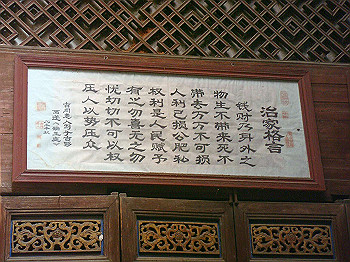 治家格言
钱财乃身外之
物生不带来死不
带去万万不可损
人利己损公肥私
权利是人民赋予
有之勿喜无之勿
忧切切不可以权
压人以势压众